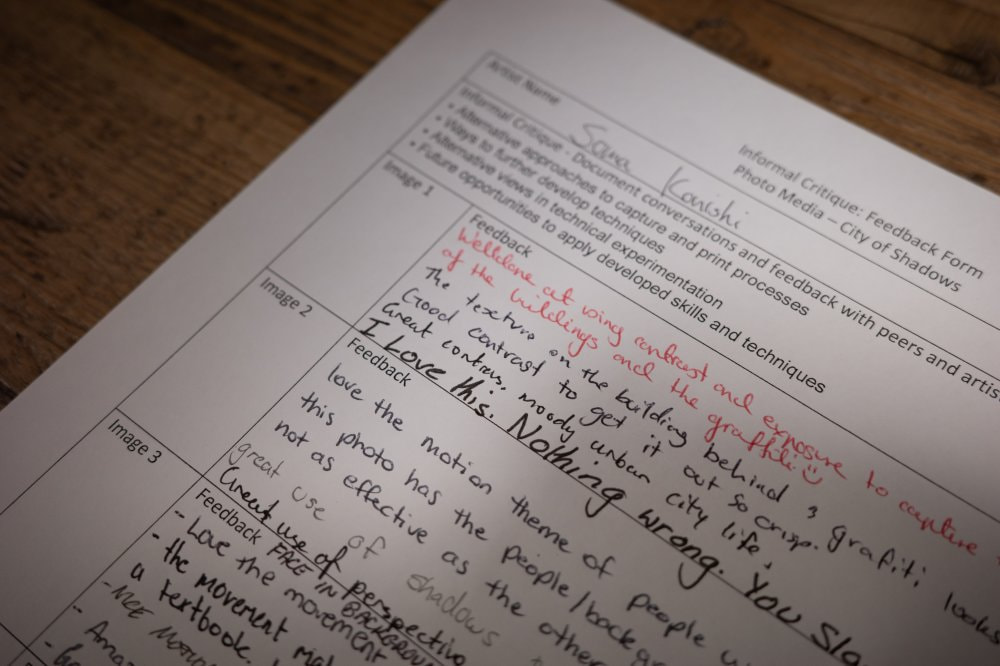 Informal Critique: Feedback Form
Photo Media – City of Shadows
Artist Name
Sana Konishi
Informal Critique - Document conversations and feedback with peers and
• Alternative approaches to capture and print processes
• Ways to further develop techniques
• Alternative views in technical experimentation
• Future opportunities to apply developed skills and techniques
Image 1
Feedback
Welldone at using contrast and exposure to capture
of the buildings and the graffiti
The texture on the building behind & grafiti looks
Good contrast to get it out so crisp.
Great contras. moody urban city life.
I Love this. Nothing wrong. You
Image 2
Feedback
love the motion theme of people
this photo has the people/
not as effective as the other
great use of shadows
Great use of perspective
FACE IN
Image 3
Feedback
- Love the movement
- the movement
a textbook.